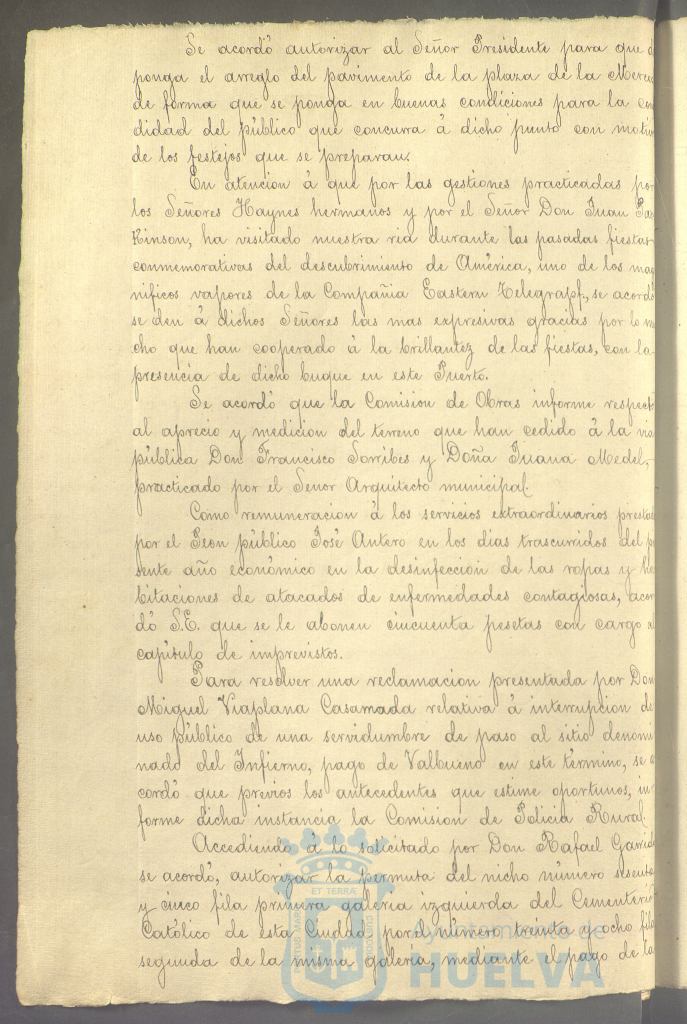 Se acordó autorizar al Señor Presidente para que d
ponga el arreglo del pavimento de la plaza de la Merce
de forma que se ponga en buenas condiciones para la co
didad del público que concurra á dicho punto con motiv
de los festejos que se preparan.
En atencion á que por las gestiones practicadas por
los Señores Haynes hermanos y por el Señor Don Juan Par
kinson, ha visitado nuestra ria durante las pasadas fiestas
conmemorativas del descubrimiento de América, uno de los mag
nificos vapores de la Compañia Eastern Telegrapf, se acordó
se den á dichos Señores las mas expresivas gracias por lo mu
cho que han cooperado á la brillantez de las fiestas, con la
presencia de dicho buque en este Puerto.
Se acordó que la Comision de Obras informe respect
al aprecio y medicion del terreno que han cedido á la via
pública Don Francisco Sorribes y Doña Juana Medel,
practicado por el Señor Arquitecto municipal.
Como remuneracion á los servicios extraordinarios prestad
por el Peon público José Antero en los dias trascurridos del p
sente año económico en la desinfeccion de las ropas y ha
bitaciones de atacados de enfermedades contagiosas, acor
dó S.E. que se le abonen cincuenta pesetas con cargo al
capitulo de imprevistos.
Para resolver una reclamacion presentada por Don
Miguel Viaplana Casamada relativa á interrupcion de
uso público de una servidumbre de paso al sitio denomi
nado del Infierno, pago de Valbueno en este término, se a
cordó que previos los antecedentes que estime oportunos, in
forme dicha instancia la Comision de Policia Rural.
Accediendo á lo solicitado por Don Rafael Garrid
se acordó, autorizar la permuta del nicho número sesenta
y cinco fila primera galeria izquierda del Cementerio
Católico de esta Ciudad por el número treinta y ocho fila
segunda de la misma galeria, mediante el pago de la
ET TERRÆ
PORTUS MARIS
CUSTODIA
Ayuntamiento de
HUELVA